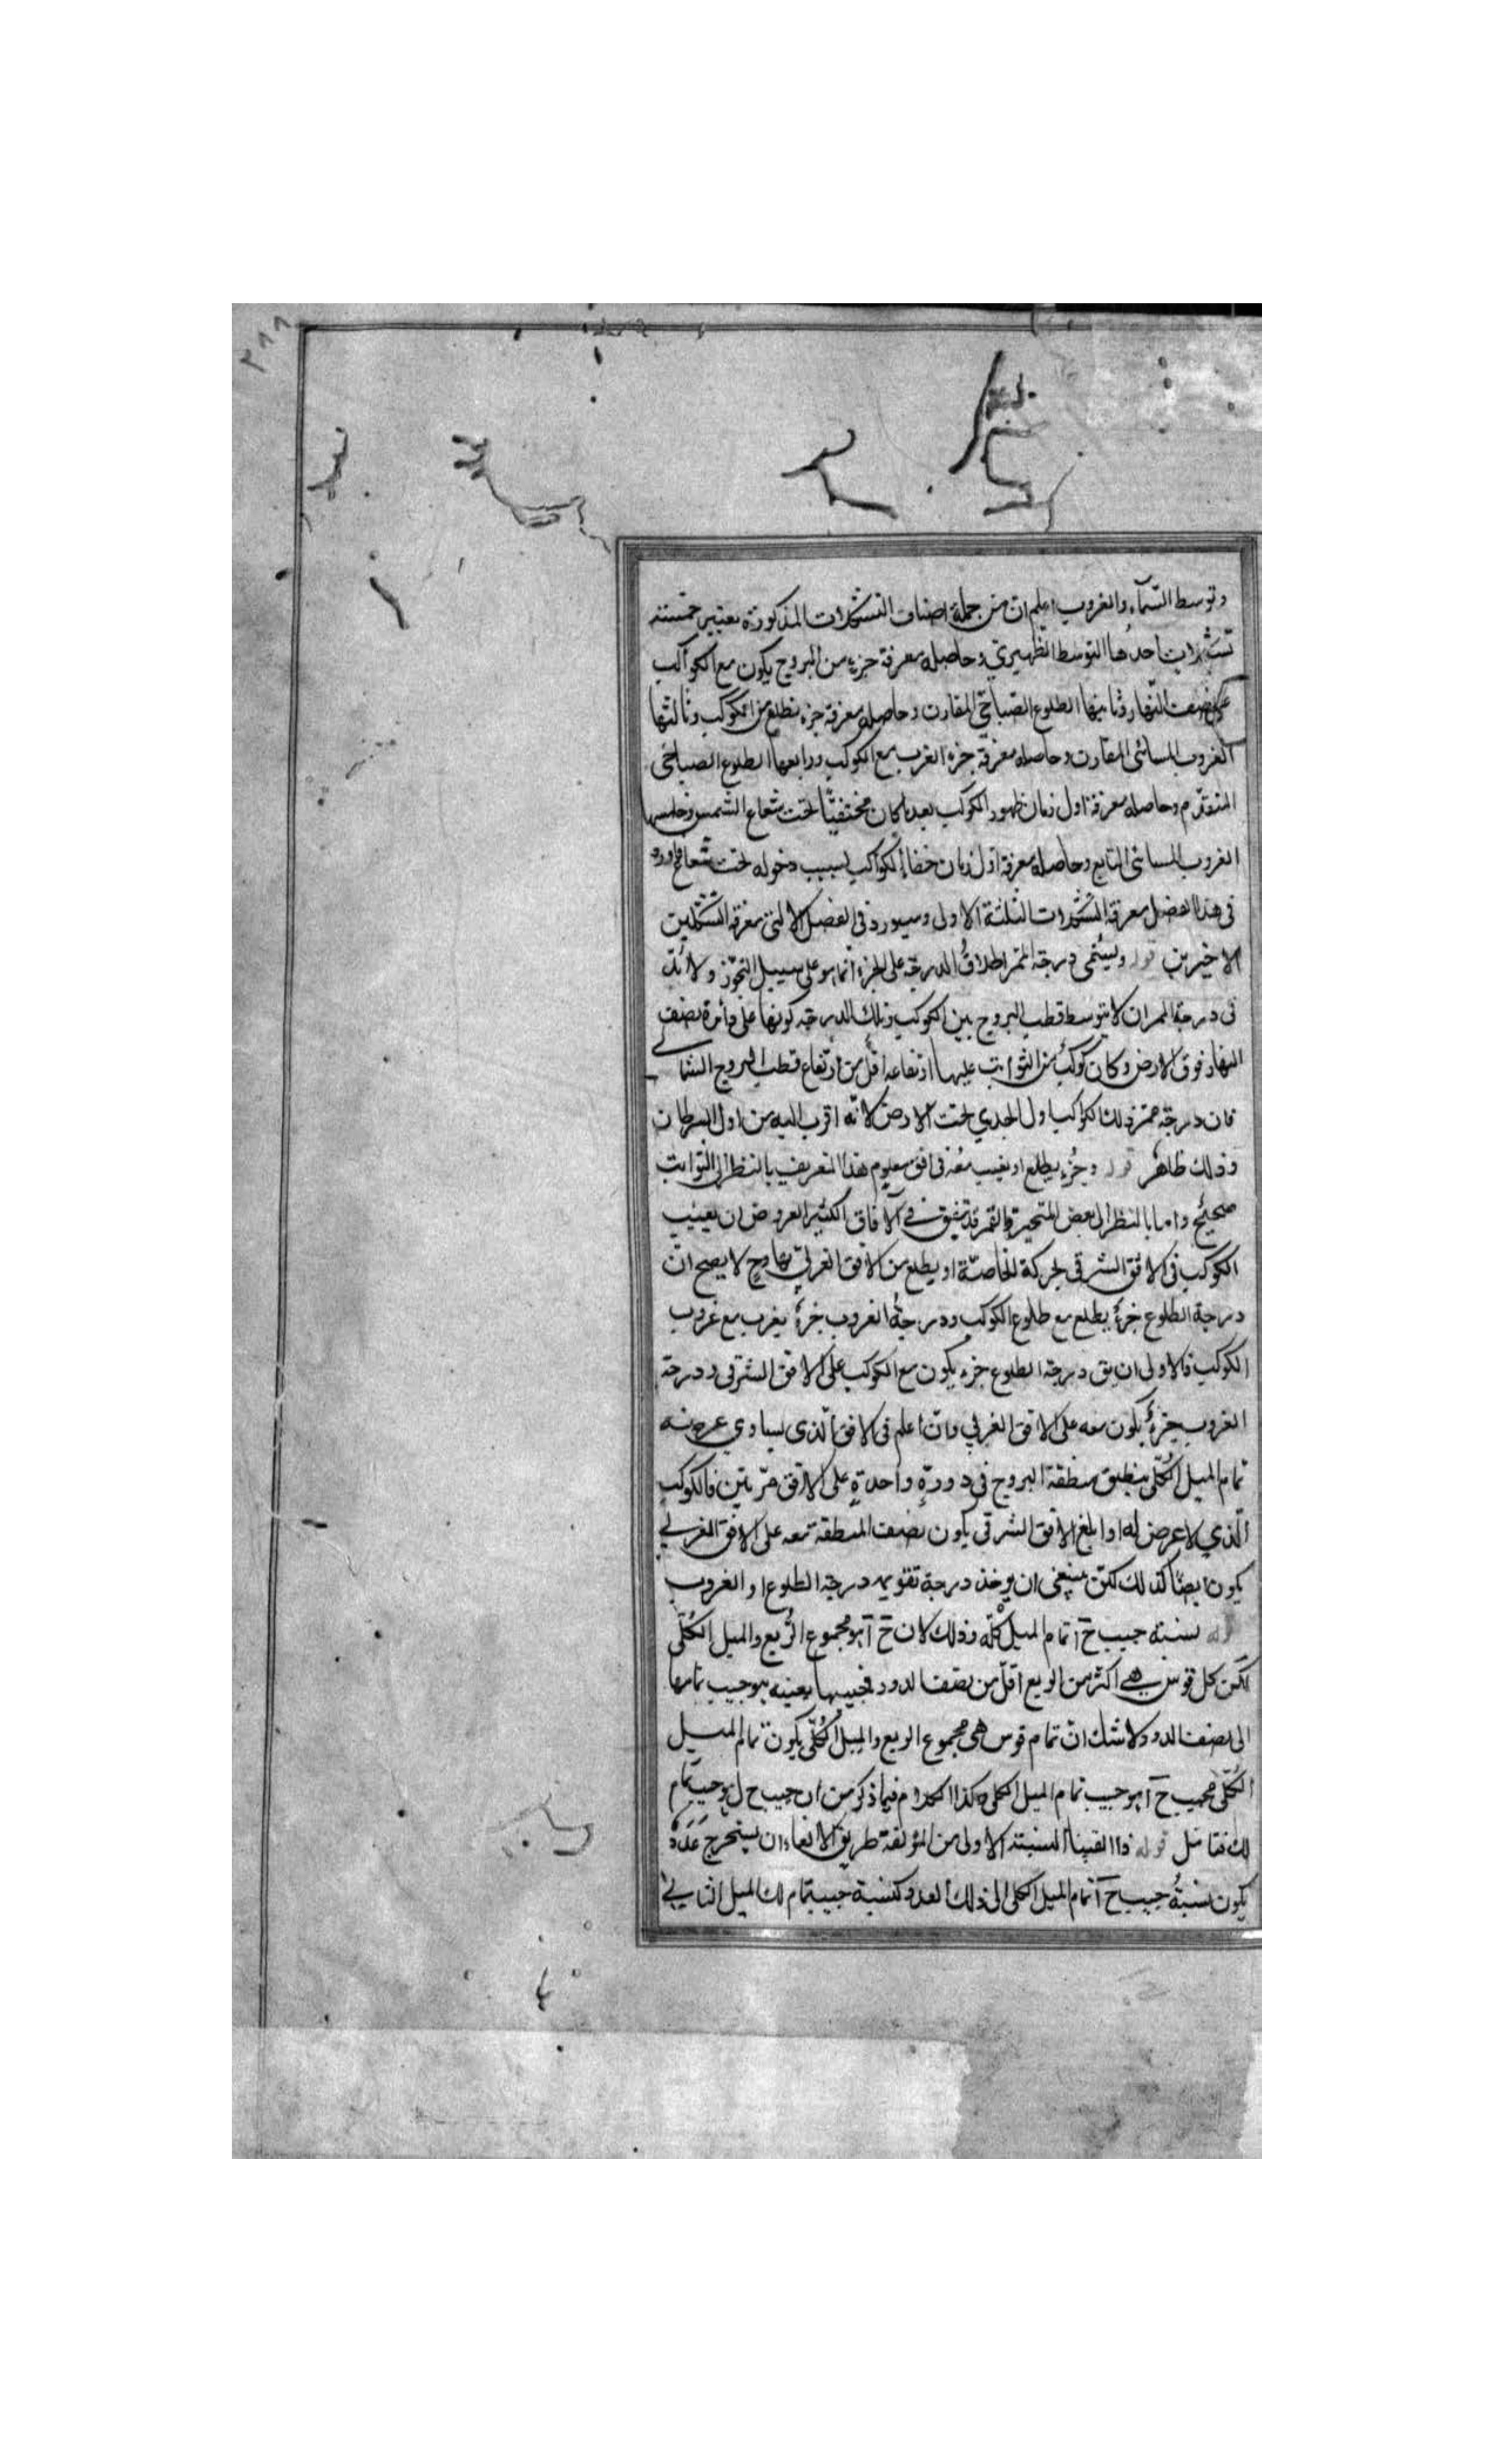 وتوسط السّمآء والغروب اعلم ان من جملة اصناف التشكلات المذكورة يعتبر خمسته
تشكلات احدُها التوسط الظهيري وحاصله معرفة جزء من البروج يكون مع الكواكب
على نصف النّهار وثانيها الطلوع الصّباحيّ المقارن وحاصله معرفة جزء يطلع من الكوكب وثالثها
الغروب المسائى المقارن وحاصله معرفة جزء الغرب مع الكوكب ورابعها الطلوع الصباحى
المتقدّم وحاصله معرفة اول زمان ظهور الكوكب بعد ما كان مختفيًّا تحت شعاع الشمس وخامسها
الغروب المسائى التابع وحاصله معرفة اول زمان خفاء الكواكب بسبب دخوله تحت شعاعها اورد
فى هذا الفصل معرفة التشكلات الثلثة الاولى وسيورد فى الفصل الاتى معرفة التشكلين
الاخيرين قوله ويسمّى درجة الممرّ اطلاقُ الدرجة على الجزء انما هو على سبيل التجوّز ولابُدّ
فى درجة الممر ان لا يتوسط قطب البروج بين الكوكب وتلك الدرجة كونها على دائرة نصف
النهار فوق الارض وكان كوكبٌ من الثوابت عليها ارتفاعه اقلّ من ارتفاع قطب البروج الشمالى
فان درجة ممرّ ذلك الكواكب اول الجدي تحت الارض لانّه اقرب اليه من اول السرطان
وذلك ظاهر قوله وجُزء يطلع او يغيب معه فى افق معلوم هذا التعريف بالنظر الى الثوابت
صحيح واما بالنظر الى بعض المتحيرة والقمر قد يتفق في الآفاق الكثير العروض ان يغيب
الكوكب فى الافق الشرقى بحركة الخاصّة او يطلع من الافق الغربىّ وحٍ لا يصح انّ
درجة الطلوع جزءٌ يطلع مع طلوع الكوكب ودرجةُ الغروب جزءٌ يغرب مع غروب
الكوكب فالاولى ان يق درجة الطلوع جزء يكون مع الكوكب على الافق الشرقى ودرجة
الغروب جزءٌ يكون معه على الافق الغربي وان اعلم فى الافق الّذى يساوي عرضه
تمام الميل الكُلّى ينطبق منطقة البروج فى دورةٍ واحدةٍ على الافق مرّتين فالكوكب
الّذي لا عرض له اذا بلغ الافق الشرقى يكون نصف المنطقة معه على الافق الغربي
يكون ايضًا كذلك لكن ينبغى ان يوخذ درجة تقويمه درجة الطلوع او الغروب
قوله نسبة جيب حَ آ تمام الميل كلّه وذلك لان حَ آ هو مجموع الرُّبع والميل الكُلّى
لكن كل قوس هے اكثر من الربع اقلّ من نصف الدور فجيبها بعينه هو جيب تمامها
الى نصف الدور ولا شك انّ تمام قوس هى مجموع الربع والميل الكُلّى يكون تمام الميل
الكُلّى فجيب حَ آ هو جيب تمام الميل الكلى وكذا الكلام فيما ذكر من ان جيب ح ل هو جيب تمام
لك فتامّل قوله فاذا القينا النسبة الاولى من المؤلفة طريق الالقاء ان يستخرج عَدَدٌ
يكون نسبةُ جيب حَ آ تمام الميل الكلى الى ذلك العدد كنسبة جيب تمام لك الميل الثانى